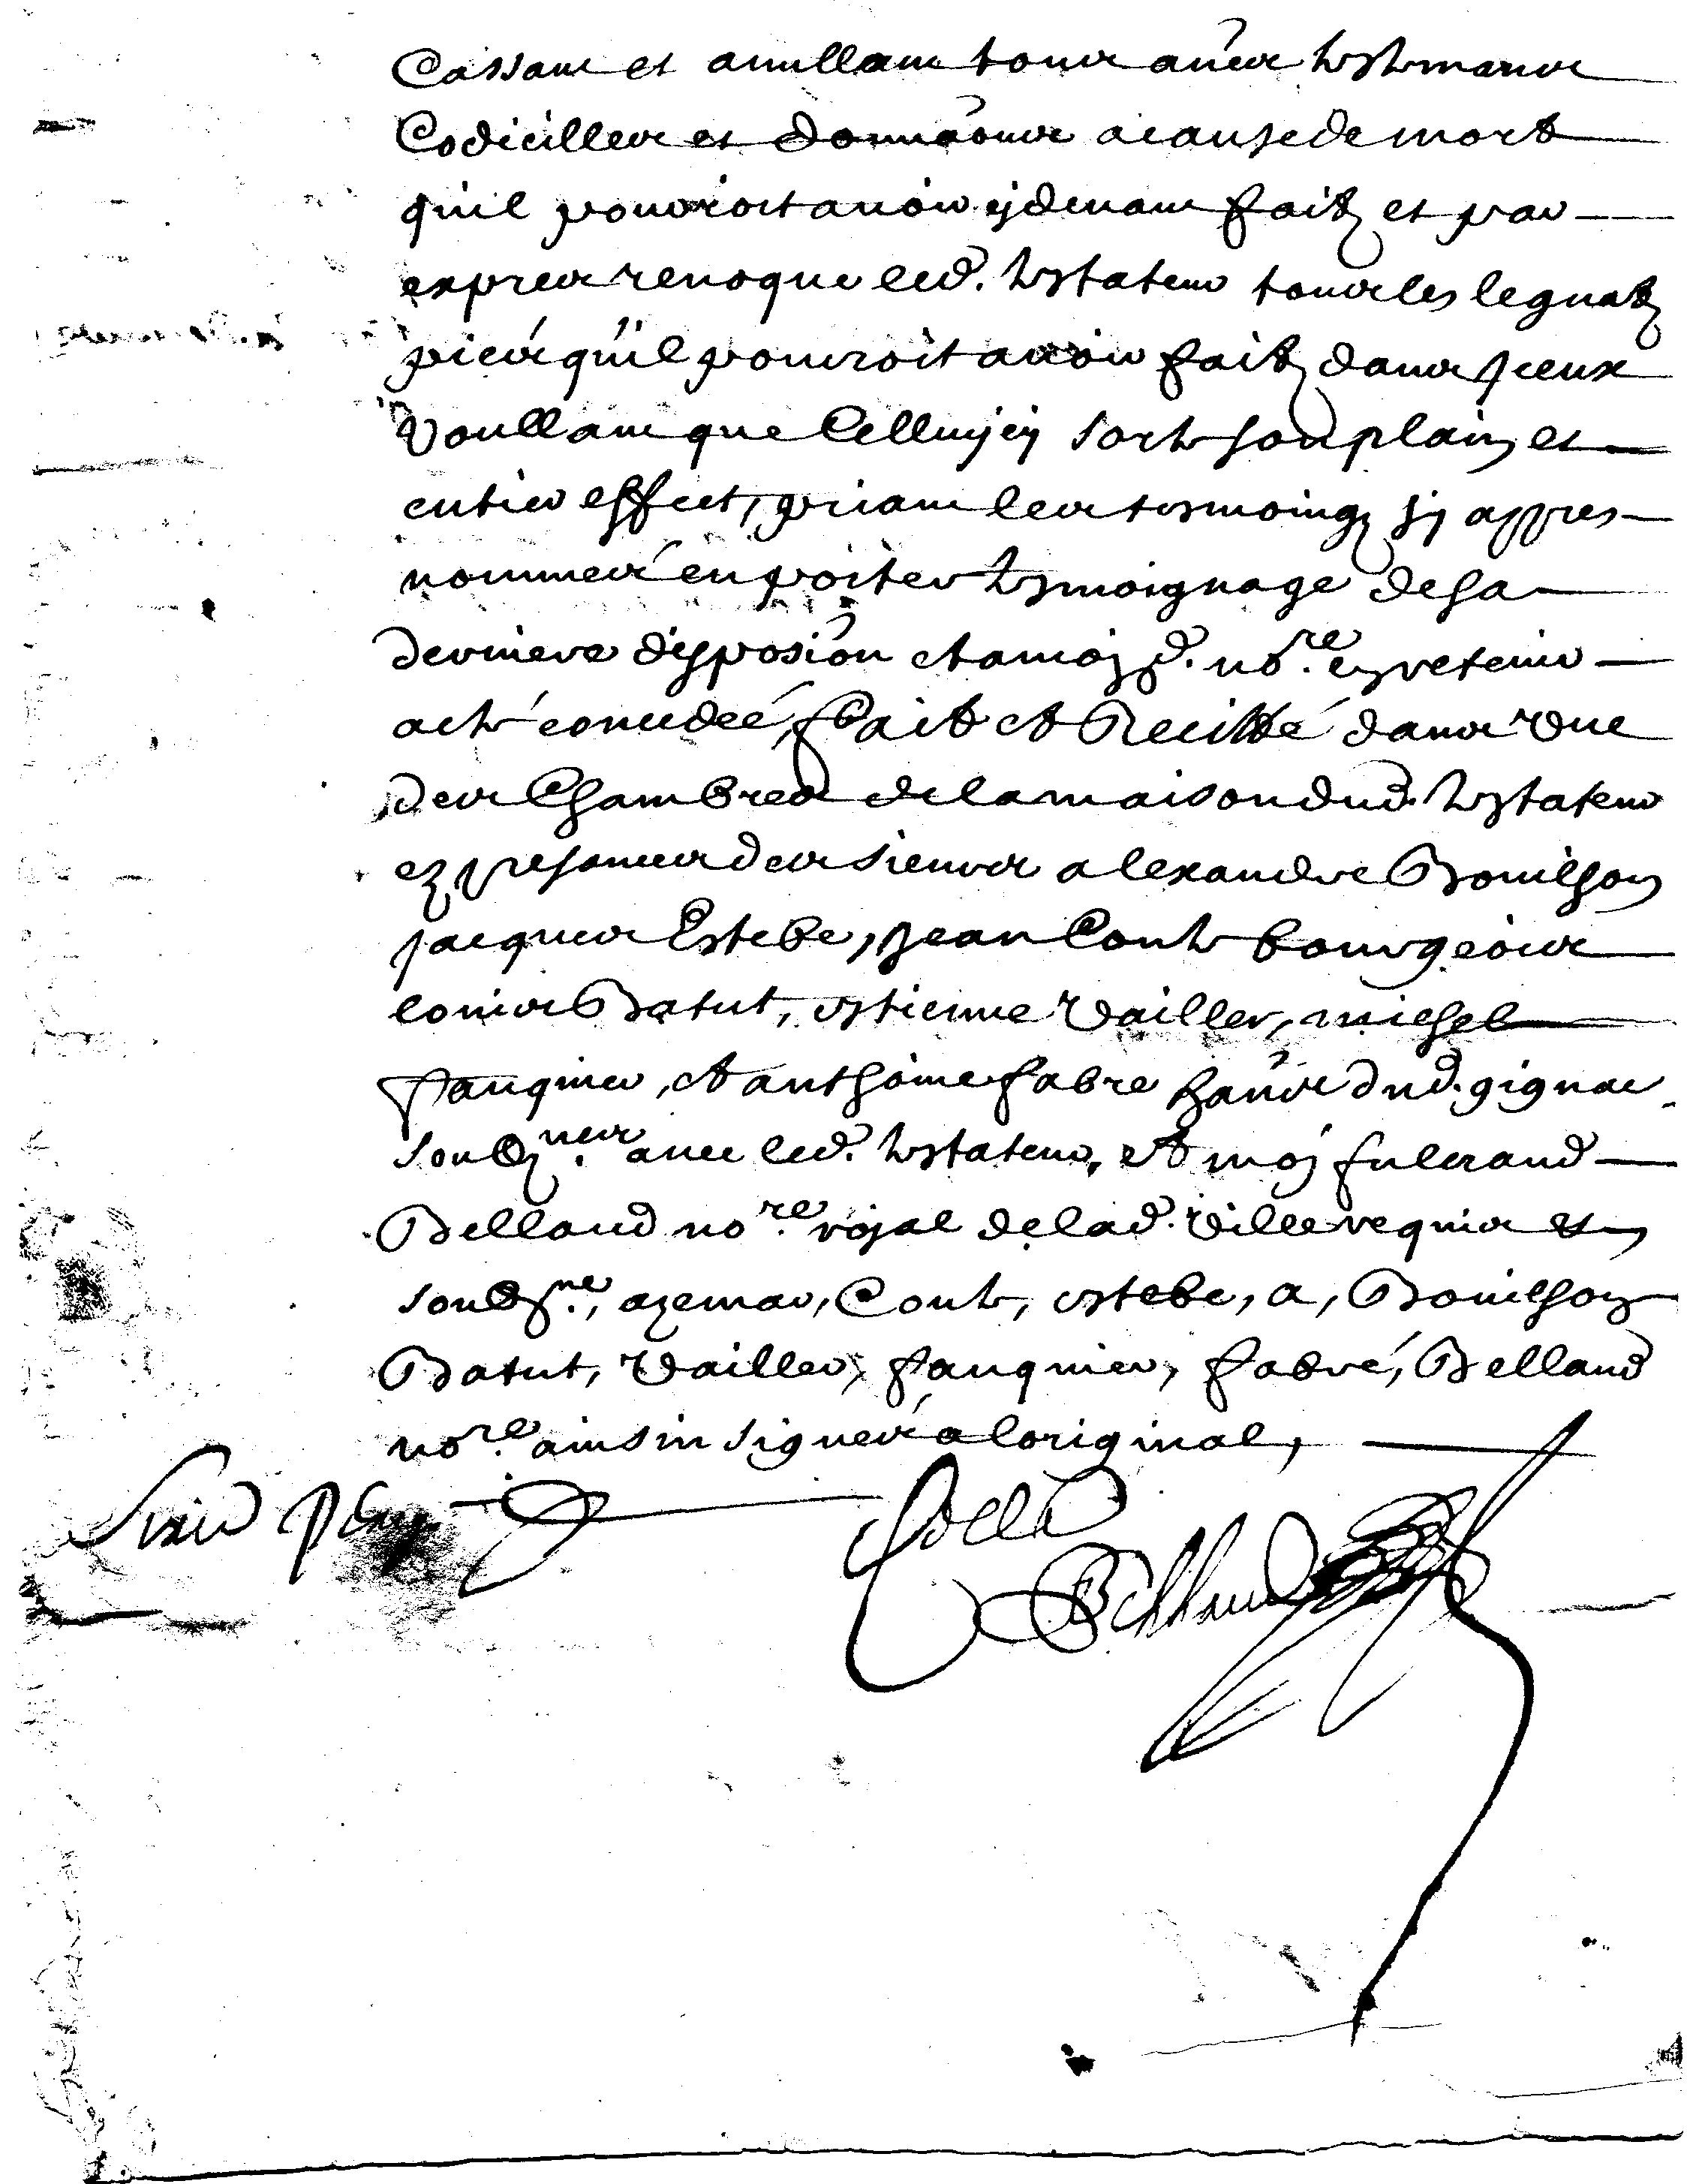 Cassant et anullant tous au~es testmans
Codicilles et dona~ons a cause de mort
qu'il pouvroit avoir cy devant faitz et par
expres revoque led. testateur tous les legnatz
pies qu'il pouvroit avoir faitz dans jceux
Voullant que Celluy cy sorte son plain et
entier effect, priant les tesmoingz sy appres
nommes en porter tesmoignage de sa
derniere disposi~on et a moy d. no.re en retenir
acte concedée, ffait et Recitté dans Vne
des Chambres de la maison dud. testateur
ez presances des sieurs alexandre Bouilhon
jacques Estebe, jean Conte bourgeois
louis Batut, estienne Vailler, michel
fauquier, et anthoine fabre ha~ns dud. gignac
soubz.nes avec led. testateur, et moy fulcrand
Belland no.re royal de lad. Ville requis et
soubs.ne, azemar, Conte, estebe, a, Bouilhon
Batut, Vailler, fauquier, fabré, Belland
no.re ainsin signes a loriginal,
Colle
Belland